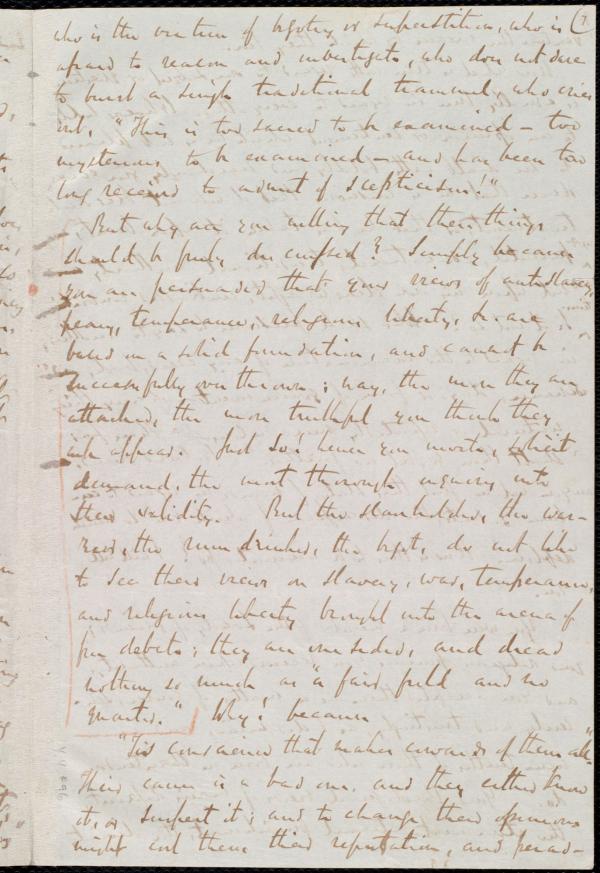 who is the victim of bigotry or superstition, who is (7
afraid to reason and investigate, who does not dare
to burst a single traditional trammel, who cries
out, "This is too sacred to be examined — too
mysterious to be examined — and has been too
long received to admit of scepticism!"
But why are you willing that these things
should be freely discussed? Simply because
you are persuaded that your views of antislavery,
peace, temperance, religious liberty, &c. are
based on a solid foundation, and cannot be
successfully overthrown; nay, the more they are
attacked, the more truthful you think they
will appear. Just so! hence you invite, solicit
demand, the most thorough inquiry into
their validity. But the slaveholder, the war-
rior, the rum drinker, the bigot, do not like
to see their views on slavery, war, temperance,
and religious liberty brought into the arena of
free debate; they are one sided, and dread
nothing so much as "a fair field and no
quarter." Why? because
"'Tis conscience that makes cowards of them all."
Their cause is a bad one, and they either know
it, or suspect it; and to change their opinions
might cost them their reputation, and perad-